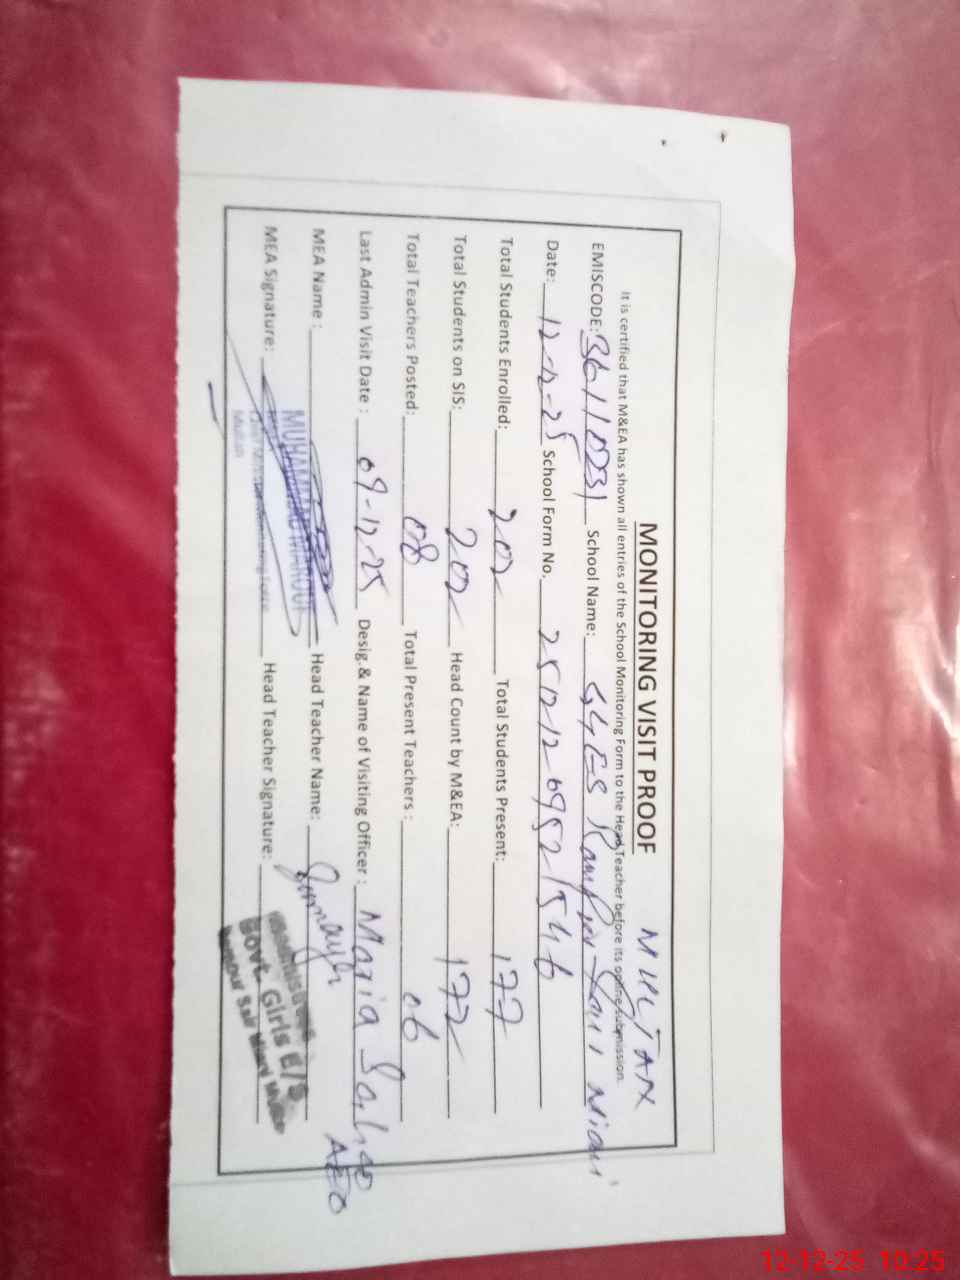 MONITORING VISIT PROOF MULTAN
It is certified that M&EA has shown all entries of the School Monitoring Form to the Head Teacher before its online submission.
EMISCODE: 36110231 School Name: GGES Rampur Sair Miani
Date: 12-12-25 School Form No. 25121269521546
Total Students Enrolled: 202 Total Students Present: 177
Total Students on SIS: 202 Head Count by M&EA: 177
Total Teachers Posted: 08 Total Present Teachers : 06
Last Admin Visit Date : 09-12-25 Desig.& Name of Visiting Officer : Maria AEO
MEA Name : Head Teacher Name:
MUHAMMAD
MEA Signature: Head Teacher Signature:
Govt. Girls E/S
12-12-25 10:25